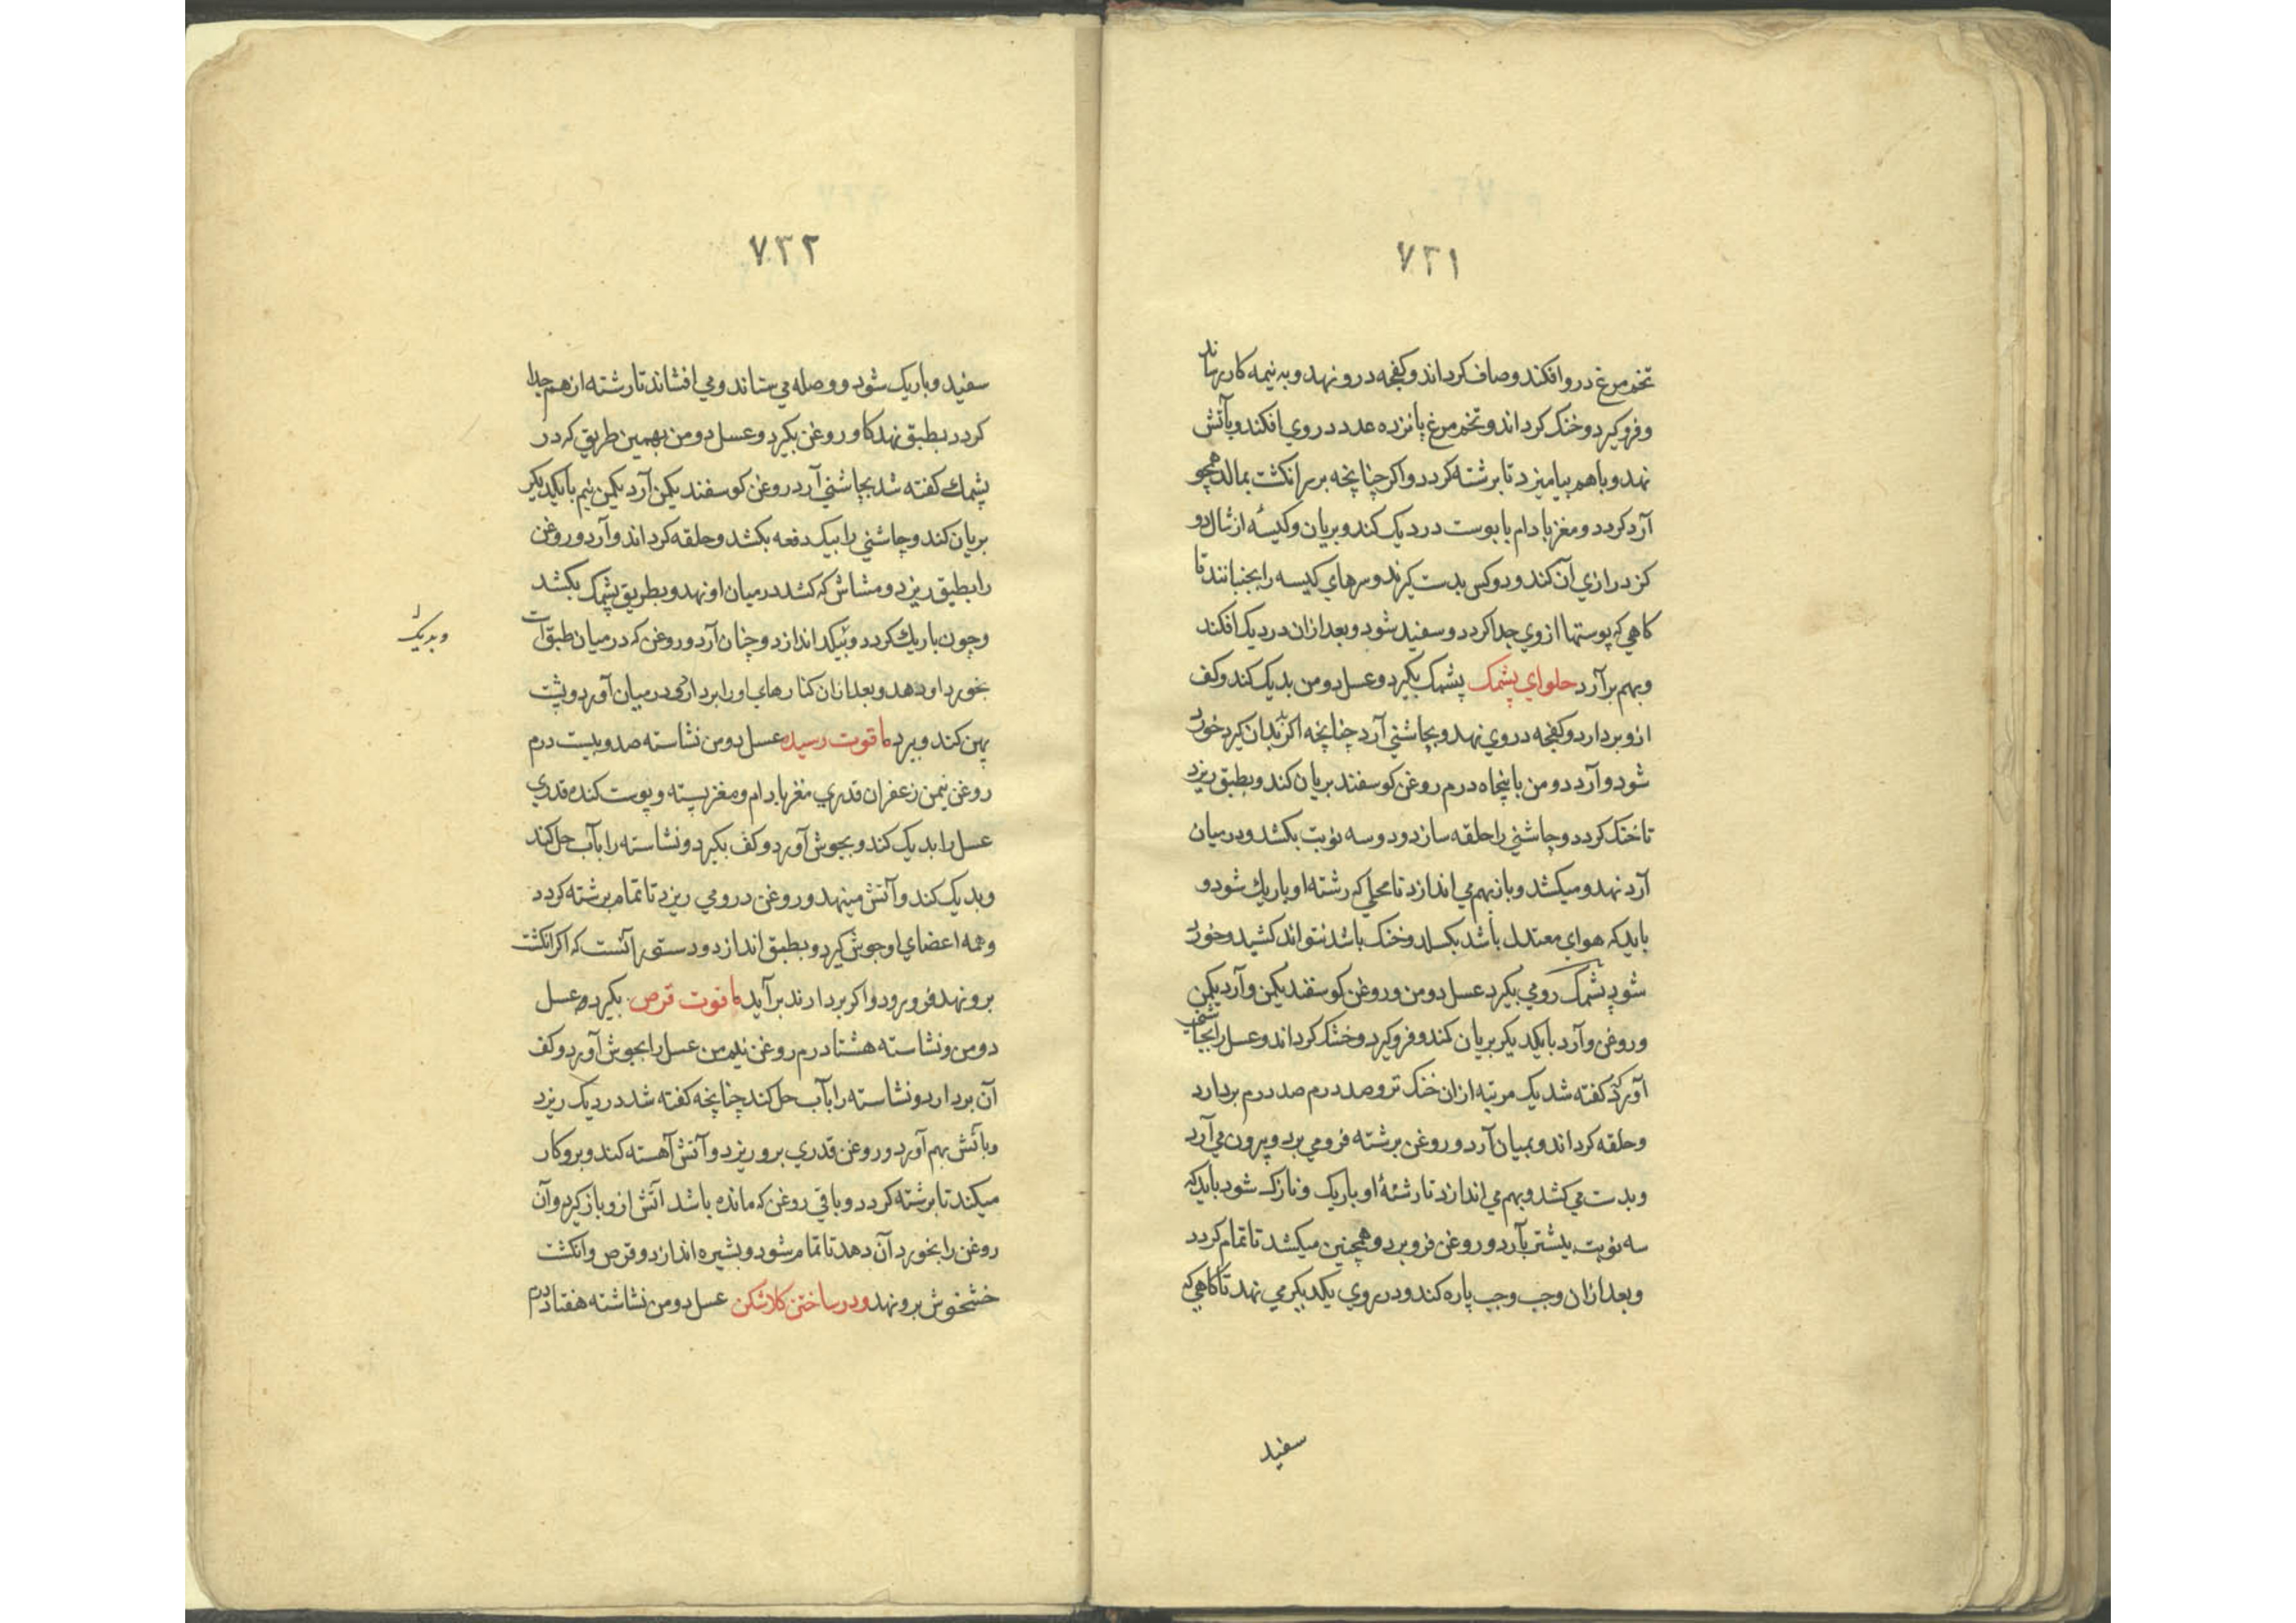 ۷۳۱
تخم مرغ در وافکند وصاف کرداند وکفچه درو نهد وبه نیمه کار رساند
وفروکیرد وخنک کرداند وتخم مرغ پانزده عدد در وی افکند وبآتش
نهد وباهم بیامیزد تا برشته کردد واکر چنانچه بر سر انکشت بمالد همچو
آرد کردد ومغز بادام با پوست در دیک کند وبریان وکیسۀ از شال دو
کز درازی آن کند ودوکس بدست کیرند وسرهای کیسه را بجنبانند تا
کاهی که پوستها از وی جدا کردد وسفید شود وبعد ازان در دیک افکند
وبهم برآرد حلوای پشمک پشمک بکیرد وعسل دومن بدیک کند وکف
ازو بردارد وکفچه در وی نهد وبچاشنی آرد چنانچه اکر بدندان کیرد خورد
شود وآرد دومن با پنجاه درم روغن کوسفند بریان کند وبطبق ریزد
تا خنک کردد وچاشنی را حلقه سازد ودو سه نوبت بکشد ودر میان
آرد نهد ومیکشد وباز بهم می اندازد تا محلی که رشته او باریک شود و
باید که هوای معتدل باشد بکسلد وخنک باشد نتواند کشید وخورد
شود پشمک رومی بکیرد عسل دومن وروغن کوسفند یکمن وآرد یکمن
وروغن وآرد بایکدیکر بریان کند وفروکیرد وخنک کرداند وعسل را بچاشنی
آورد که کفته شد یک مرتبه ازان خنک تر وصد درم صد درم بردارد
وحلقه کرداند وبمیان آرد وروغن برشته فرو می برد وبیرون می آرد
وبدست می کشد وبهم می اندازد تا رشتۀ او باریک ونازک شود باید که
سه نوبت بیشتر بآرد وروغن فرو برد وهمچنین میکشد تا تمام کردد
وبعد ازان وجب وجب پاره کند ودر روی یکدیکر می نهد تا کاهی که
سفید
۷۳۲
سفید وباریک شود ووصله می ستاند ومی افشاند تا رشته از هم جدا
کردد بطبق نهد کاو روغن بکیرد وعسل دومن بهمین طریق که در
پشمک کفته شد بچاشنی آرد روغن کوسفند یکمن آرد یکمن نیم بایکدیکر
بریان کند وچاشنی را بیک دفعه بکشد وحلقه کرداند وآرد وروغن
را بطبق ریزد ومشاش که کشد در میان او نهد وبطریق پشمک بکشد
وچون باریک کردد وبیکد اندازد وچنان آرد وروغن که در میان طبق است
بخورد او دهد وبعد ازان کنارهای اورا بردارد ودر میان آورد وپشت
پهن کند وببرد ماقوت رسیده عسل دومن نشاسته صد وبیست درم
روغن نیمن زعفران قدری مغز بادام ومغز پسته وپوست کنده قدری
عسل را بدیک کند وبجوش آورد وکف بکیرد ونشاسته را بآب حل کند
وبدیک کند وآتش مینهد وروغن درو می ریزد تا تمام برشته کردد
وهمه اعضای او جوش کیرد وبطبق اندازد ودستی را آنست که اکر انکشت
برو نهد فرو رود واکر بردارند برآید ماقوت قرص بکیرد عسل
دومن ونشاسته هشتاد درم روغن نیم من عسل را بجوش آورد وکف
آن بردارد ونشاسته را بآب حل کند چنانچه کفته شد در دیک ریزد
وبآتش بهم آورد وروغن قدری برو ریزد وآتش آهسته کند وبرو کار
میکند تا برشته کردد وباقی روغن که مانده باشد آتش ازو باز کیرد وآن
روغن را بخورد آن دهد تا تمام شود وبشیره اندازد وقرص وانکشت
خشخوش برو نهد ودر ساختن کلاشکن عسل دومن نشاشته هفتاد درم